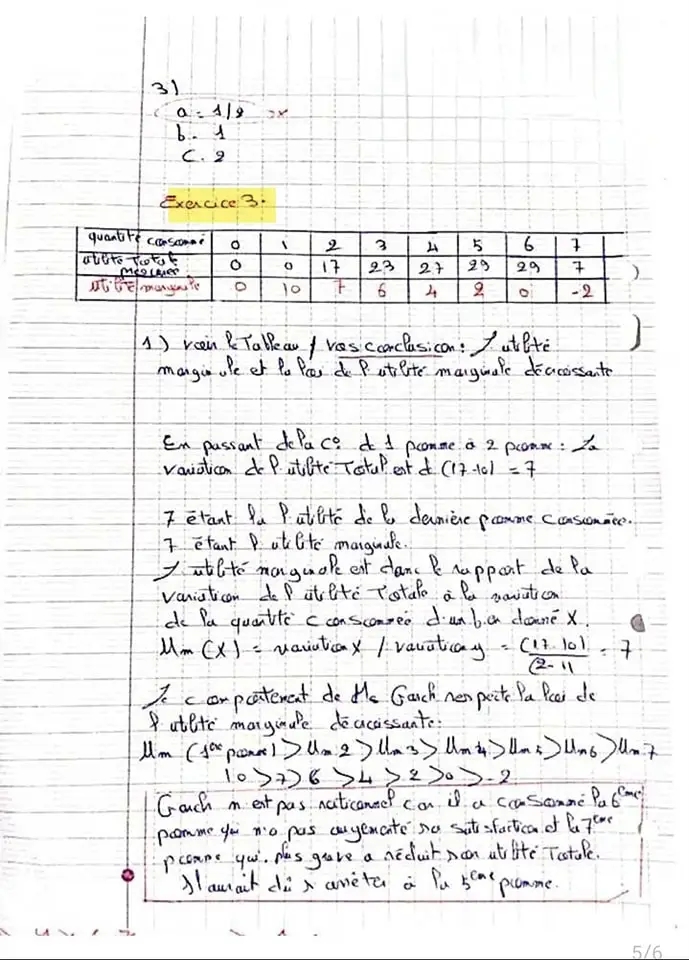 3)
a = 1/2
b = 1
C. 2
Exercice 3.
quantité consommé 0 1 2 3 4 5 6 7
utilité Total mesurée 0 0 17 23 27 29 29 7
utilité marginale 0 10 7 6 4 2 0 -2
1) voir le Tableau / vos conclusion: L'utilité
marginale et la loi de l'utilité marginale décroissante
En passant de la C° de 1 pomme à 2 pomme: La
variation de l'utilité Total est d (17-10) = 7
7 étant la l'utilité de la dernière pomme consommée.
7 étant l'utilité marginale.
L'utilité marginale est donc le rapport de la
variation de l'utilité Totale à la variation
de la quantité consommée d'un bien donné X.
Um (X) = variation X / variation y = (17-10)/(2-1) = 7
Le comportement de Mr Gach respecte la loi de
l'utilité marginale décroissante:
Um (1ere pomme) > Um 2 > Um 3 > Um 4 > Um 5 > Um 6 > Um 7
10 > 7 > 6 > 4 > 2 > 0 > -2
Gach n'est pas rationnel car il a consommé la 6eme
pomme qui n'a pas augmenté sa satisfaction et la 7eme
pomme qui. plus grave a réduit son utilité Totale.
Il aurait dû s'arrêter à la 5eme pomme.
5/6